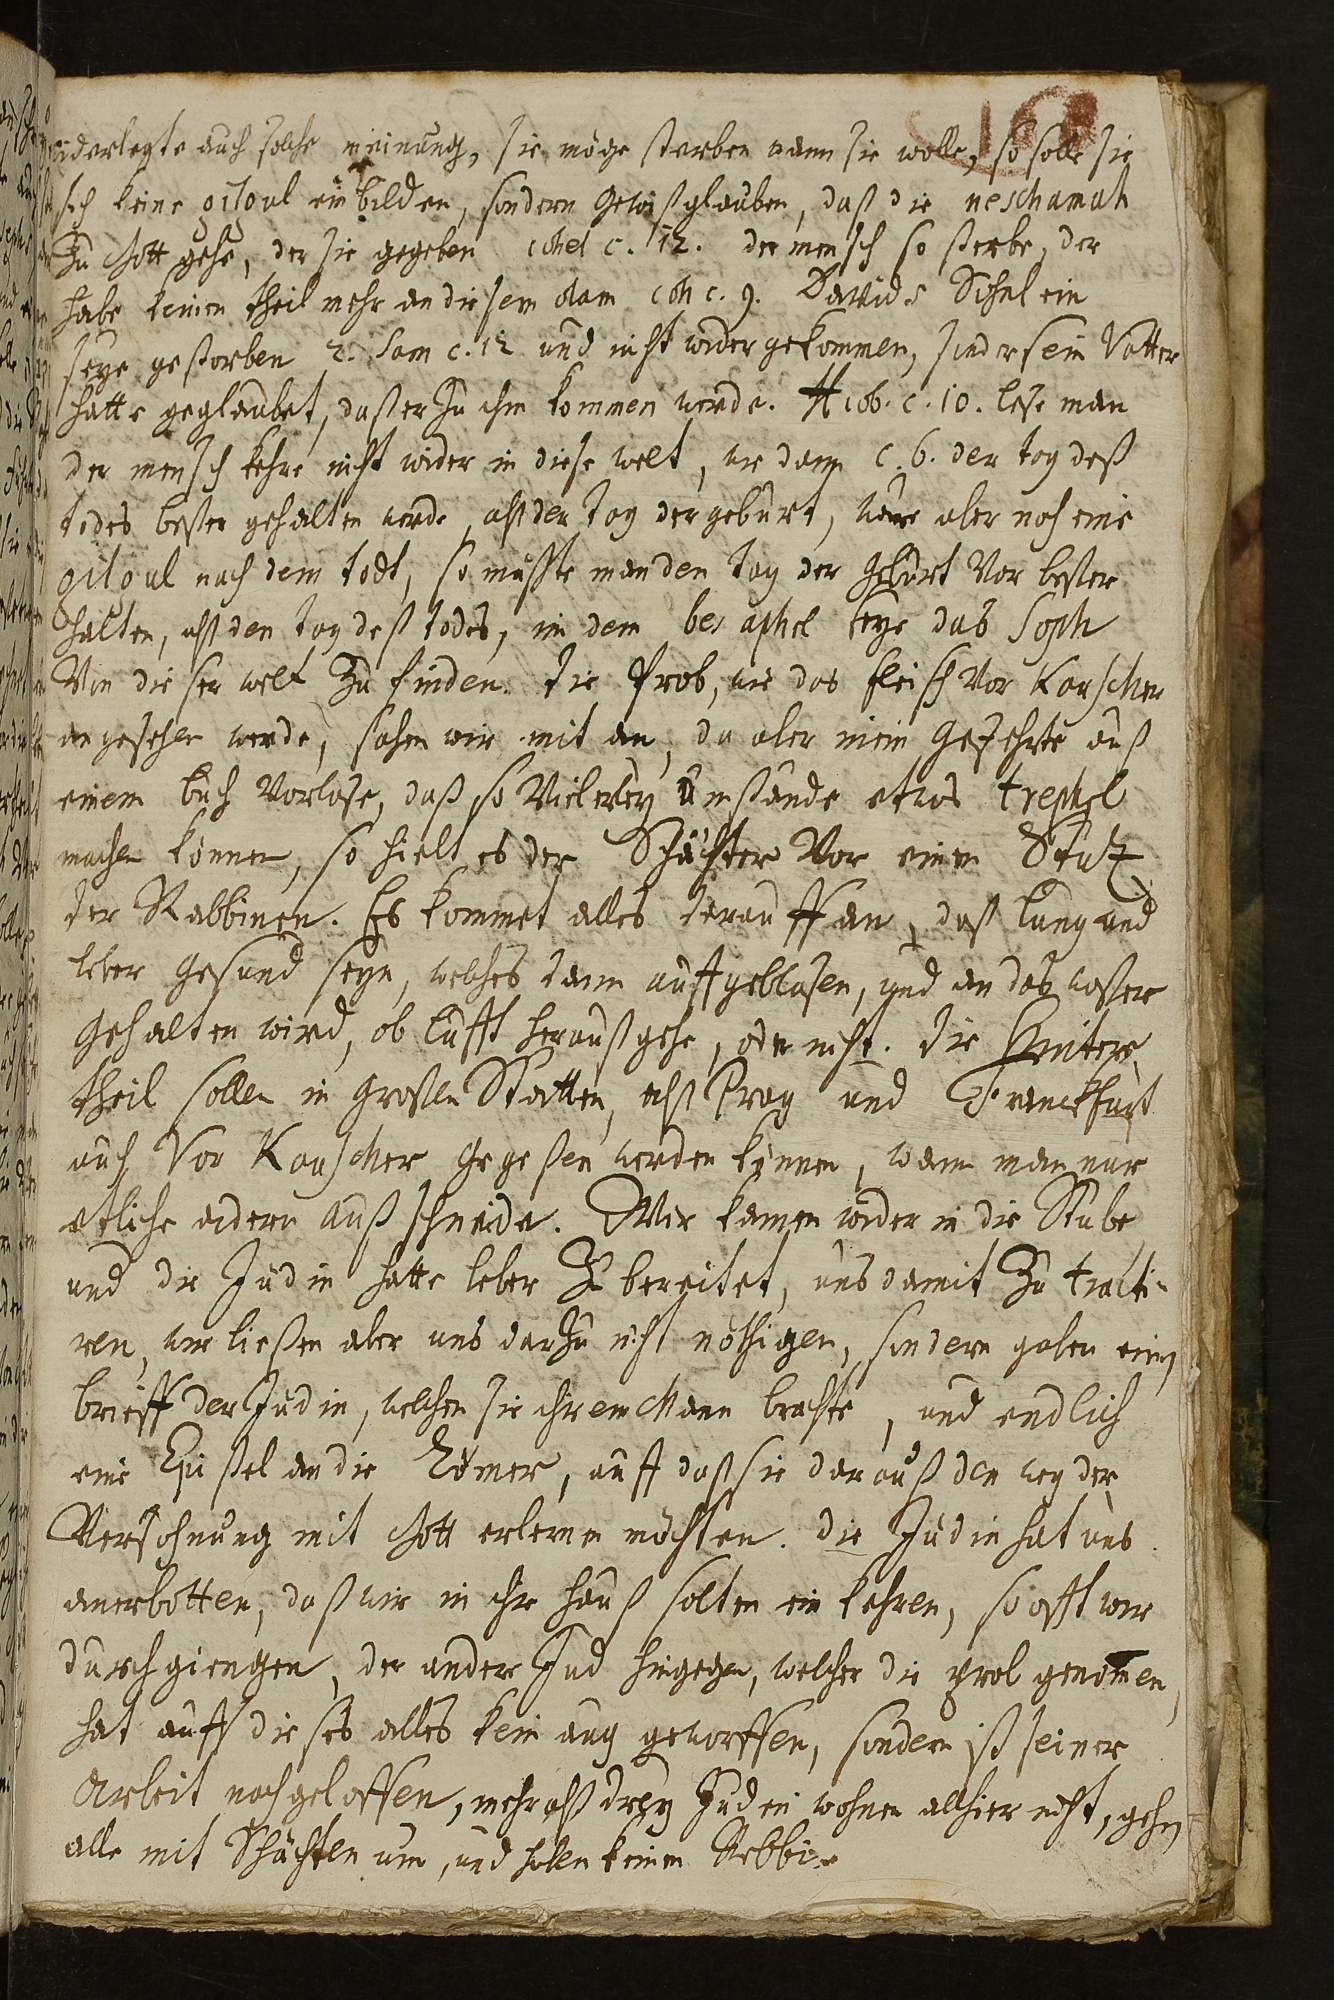 widerlegte auch solche meinung, sie möge sterben wann sie wolle, so solle sie
sich keine gilgul einbilden, sondern Gewiß glauben, daß die neschamah
Zu Gott gehe, der sie gegeben cohel c. 12. der mensch so sterbe, der
habe keinen theil mehr an diesem olam coh c. 9. Davids Sohnlein
seye gestorben 2. Sam c. 12 und nicht wider gekommen, sonder sein Vatter
hatte geglaubet, daß er Zu ihm kommen werde. Hiob. c. 10. lese man
der mensch kehre nicht wider in diese welt, wie dann c. 6. der tag deß
todes besser gehalten werde, alß der tag der geburt, wäre aber noch eine
gilgul nach dem todt, so müsste man den tag der Geburt Vor besser
halten, alß den tag deß todes, in dem bei aphel seye das Soph
Von dieser welt Zu finden. die Prob, wie das fleisch Vor Kauscher
angesehen werde, sahen wir mit an, da aber mein Gefehrte auß
einem buch Vorlase, daß so Vielerley Umstände etwas trephel
machen können, so hielt es der Schächter Vor einen Stutz
der Rabbinen. Es kommet alles darauff an, daß lung und
leber Gesund seyn, welches dann auffgeblasen, und an das wasser
Gehalten wird, ob lufft herauß gehe, oder nicht. die Hintere
theil sollen in Großen Stätten, alß Prag und Franckfurt
auch Vor Kauscher Gegeßen werden können, wann man nur
etliche adern außschneide. Wir kamen wider in die Stube
und die Jüdin hatte leber Zubereitet, uns damit Zu tracti-
ren, wir ließen aber uns darzu nicht nöthigen, sondern gaben einen
brieff der Jüdin, welchen sie ihrem Mann brachte, und endlich
eine Epistel an die Römer, auff daß sie darauß den weg der
Versohnung mit Gott erlernen möchten. die Jüdin hat uns
anerbotten, daß wir in ihr hauß solten einkehren, so offt wir
durchgiengen, der andere Jud hingegen, welcher die prob genommen,
hat auff dieses alles kein aug geworffen, sondern ist seiner
Arbeit nachgeloffen, mehr alß drey Juden wohnen allhier nicht, gehen
alle mit Schächten um, und haben keinen Rebbi.